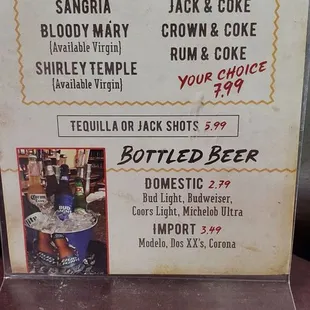 SANGRIA
BLOODY MARY
(Available Virgin)
SHIRLEY TEMPLE
(Available Virgin)
JACK & COKE
CROWN & COKE
RUM & COKE
YOUR CHOICE
7.99
TEQUILLA OR JACK SHOTS 5.99
BOTTLED BEER
DOMESTIC 2.79
Bud Light, Budweiser,
Coors Light, Michelob Ultra
IMPORT 3.49
Modelo, Dos XX's, Corona